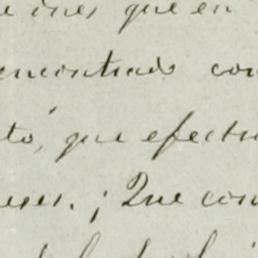 que en
encontrado con
to, que efectu
eses. ¡Que con